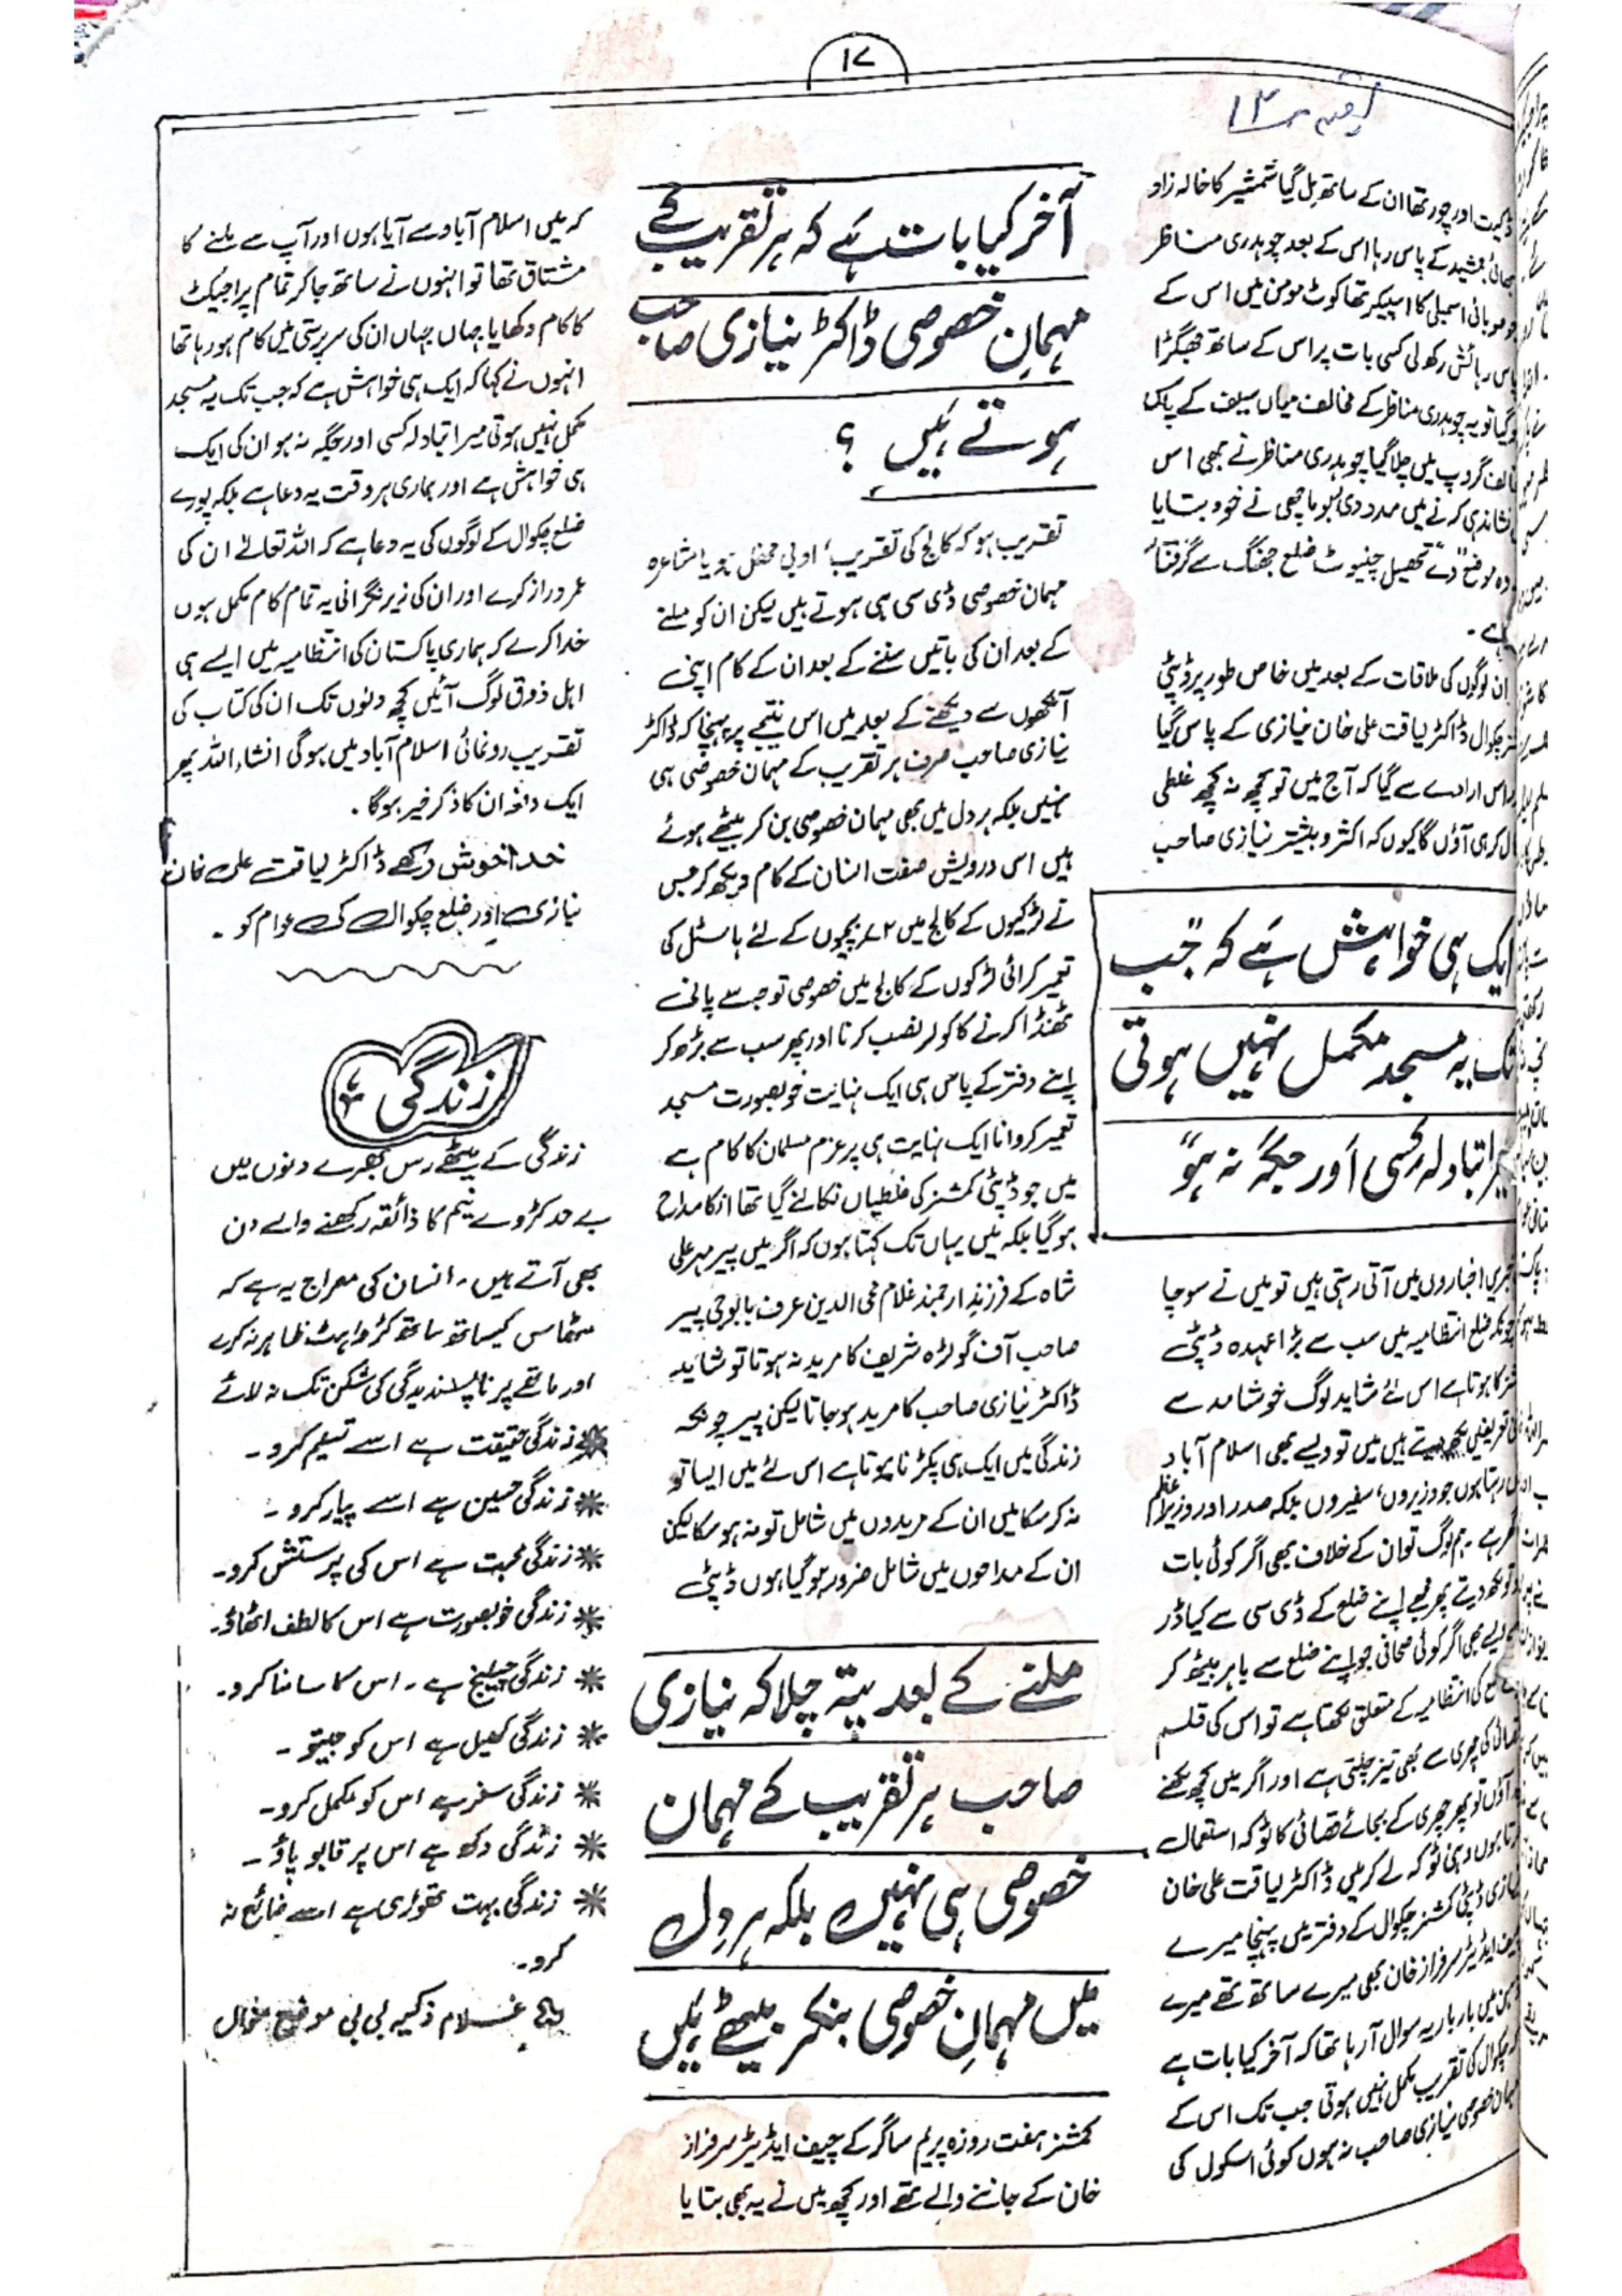 ۱۷
بقیہ ۱۳
ڈکیت اور چور تھا ان کے ساتھ مل گیا شمشیر کا خالہ زاد
بھائی جمشید کے پاس رہا اس کے بعد چوہدری مناظر
جو صوبائی اسمبلی کا اسپیکر تھا کوٹ مومن میں اس کے
پاس رہائش رکھ لی کسی بات پر اس کے ساتھ جھگڑا
ہو گیا تو یہ چوہدری مناظر کے مخالف میاں سیف کے پاس
مخالف گروپ میں چلا گیا چوہدری مناظر نے بھی اس
نشاندہی کرنے میں مدد دی لبو ماچھی نے خود بتایا
وہ موضع تحصیل چنیوٹ ضلع جھنگ سے گرفتار
ہے۔
ان لوگوں کی ملاقات کے بعد میں خاص طور پر ڈپٹی
چکوال ڈاکٹر لیاقت علی خان نیازی کے پاس گیا
اس ارادے سے گیا کہ آج میں تو کچھ نہ کچھ غلطی
نکال کر ہی آؤں گا کیوں کہ اکثر و بیشتر نیازی صاحب
ایک ہی خواہش ہے کہ "جب
تک یہ مسجد مکمل نہیں ہوتی
میرا تبادلہ کسی اور جگہ نہ ہو"
خبریں اخباروں میں آتی رہتی ہیں تو میں نے سوچا
چونکہ ضلع انتظامیہ میں سب سے بڑا عہدہ ڈپٹی
کمشنر کا ہوتا ہے اس لئے شاید لوگ خوشامد سے
تعریفیں لکھ دیتے ہیں میں تو ویسے بھی اسلام آباد
میں رہتا ہوں جو وزیروں، سفیروں بلکہ صدر اور وزیراعظم
گھر ہے۔ ہم لوگ تو ان کے خلاف بھی اگر کوئی بات
ہو تو لکھ دیتے پھر مجھے اپنے ضلع کے ڈی سی سے کیا ڈر
ویسے بھی اگر کوئی صحافی جو اپنے ضلع سے باہر بیٹھ کر
ضلع کی انتظامیہ کے متعلق لکھتا ہے تو اس کی قلم
قصائی کی چھری سے بھی تیز چلتی ہے اور اگر میں کچھ لکھنے
آؤں تو پھر چھری کے بجائے قصائی کا ٹوکہ استعمال
کرتا ہوں وہی ٹوکہ لے کر میں ڈاکٹر لیاقت علی خان
نیازی ڈپٹی کمشنر چکوال کے دفتر میں پہنچا میرے
چیف ایڈیٹر سرفراز خان بھی میرے ساتھ تھے میرے
ذہن میں بار بار یہ سوال آ رہا تھا کہ آخر کیا بات ہے
کہ چکوال کی تقریب مکمل نہیں ہوتی جب تک اس کے
مہمان خصوصی نیازی صاحب نہ ہوں کوئی اسکول کی
آخر کیا بات ہے کہ ہر تقریب کے
مہمانِ خصوصی ڈاکٹر نیازی صاحب
ہوتے ہیں ؟
تقریب ہو کہ کالج کی تقریب، ادبی محفل ہو یا مشاعرہ
مہمان خصوصی ڈی سی ہی ہوتے ہیں لیکن ان کو ملنے
کے بعد ان کی باتیں سننے کے بعد ان کے کام اپنی
آنکھوں سے دیکھنے کے بعد میں اس نتیجے پر پہنچا کہ ڈاکٹر
نیازی صاحب صرف ہر تقریب کے مہمان خصوصی ہی
نہیں بلکہ ہر دل میں بھی مہمان خصوصی بن کر بیٹھے ہوئے
ہیں اس درویش صفت انسان کے کام دیکھ کر جس
نے لڑکیوں کے کالج میں ۷۲ بچیوں کے لئے ہاسٹل کی
تعمیر کرائی لڑکوں کے کالج میں خصوصی توجہ سے پانی
ٹھنڈا کرنے کا کولر نصب کرنا اور پھر سب سے بڑھ کر
اپنے دفتر کے پاس ہی ایک نہایت خوبصورت مسجد
تعمیر کروانا ایک نہایت ہی پرعزم مسلمان کا کام ہے
میں جو ڈپٹی کمشنر کی غلطیاں نکالنے گیا تھا انکا مداح
ہو گیا بلکہ میں یہاں تک کہتا ہوں کہ اگر میں پیر مہر علی
شاہ کے فرزندِ ارجمند غلام محی الدین عرف بابوجی پیر
صاحب آف گولڑہ شریف کا مرید نہ ہوتا تو شاید
ڈاکٹر نیازی صاحب کا مرید ہو جاتا لیکن پیر چونکہ
زندگی میں ایک ہی پکڑنا ہوتا ہے اس لئے میں ایسا تو
نہ کر سکا میں ان کے مریدوں میں شامل تو نہ ہو سکا لیکن
ان کے مداحوں میں شامل ضرور ہو گیا ہوں ڈپٹی
ملنے کے بعد پتہ چلا کہ نیازی
صاحب ہر تقریب کے مہمان
خصوصی ہی نہیں بلکہ ہر دل
میں مہمانِ خصوصی بنکر بیٹھے ہیں
کمشنر ہفت روزہ پریم ساگر کے چیف ایڈیٹر سرفراز
خان کے جاننے والے تھے اور کچھ میں نے یہ بھی بتایا
کہ میں اسلام آباد سے آیا ہوں اور آپ سے ملنے کا
مشتاق تھا تو انہوں نے ساتھ جا کر تمام پراجیکٹ
کا کام دکھایا جہاں جہاں ان کی سرپرستی میں کام ہو رہا تھا
انہوں نے کہا کہ ایک ہی خواہش ہے کہ جب تک یہ مسجد
مکمل نہیں ہوتی میرا تبادلہ کسی اور جگہ نہ ہو ان کی ایک
ہی خواہش ہے اور ہماری ہر وقت یہ دعا ہے بلکہ پورے
ضلع چکوال کے لوگوں کی یہ دعا ہے کہ اللہ تعالےٰ ان کی
عمر دراز کرے اور ان کی زیر نگرانی یہ تمام کام مکمل ہوں
خدا کرے کہ ہماری پاکستان کی انتظامیہ میں ایسے ہی
اہل ذوق لوگ آئیں کچھ دنوں تک ان کی کتاب کی
تقریب رونمائی اسلام آباد میں ہوگی انشاء اللہ پھر
ایک دفعہ ان کا ذکر خیر ہوگا۔
خدا خوش رکھے ڈاکٹر لیاقت علی خان
نیازی اور ضلع چکوال کی عوام کو۔
زندگی
زندگی کے میٹھے رس بھرے دنوں میں
بے حد کڑوے نیم کا ذائقہ رکھنے والے دن
بھی آتے ہیں۔ انسان کی معراج یہ ہے کہ
مٹھاس کیساتھ ساتھ کڑواہٹ ظاہر نہ کرے
اور ماتھے پر ناپسندیدگی کی شکن تک نہ لائے
* زندگی حقیقت ہے اسے تسلیم کرو۔
* زندگی حسین ہے اسے پیار کرو۔
* زندگی محبت ہے اس کی پرستش کرو۔
* زندگی خوبصورت ہے اس کا لطف اٹھاؤ۔
* زندگی چیلنج ہے۔ اس کا سامنا کرو۔
* زندگی کھیل ہے اس کو جیتو۔
* زندگی سفر ہے اس کو مکمل کرو۔
* زندگی دکھ ہے اس پر قابو پاؤ۔
* زندگی بہت تھوڑی ہے اسے ضائع نہ
کرو۔
غلام ذکیہ بی بی موضع منوال